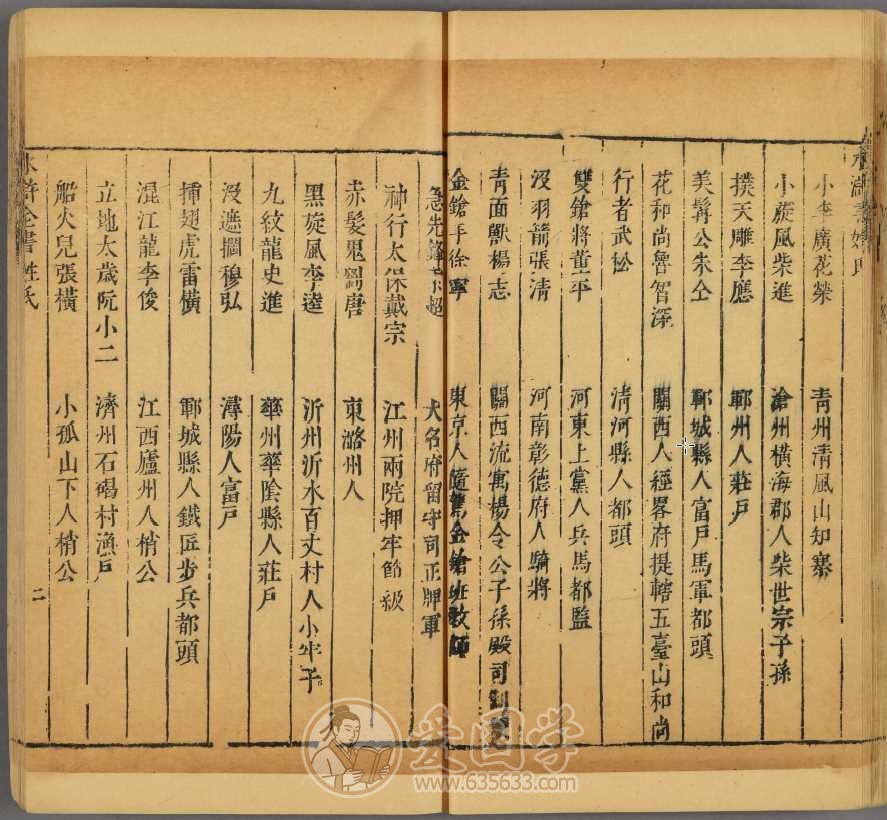 水滸全書姓氏
小李廣花榮　青州清風山知寨
小旋風柴進　滄州橫海郡人柴世宗子孫
撲天雕李應　鄆州人莊戶
美髯公朱仝　鄆城縣人富戶馬軍都頭
花和尚魯智深　關西人經畧府提轄五臺山和尚
行者武松　清河縣人都頭
雙鎗將董平　河東上黨人兵馬都監
沒羽箭張清　河南彰德府人騎將
青面獸楊志　關西流寓楊令公子孫殿司制使
金鎗手徐寧　東京人隨駕金鎗班敎師
急先鋒索超　大名府留守司正牌軍
神行太保戴宗　江州兩院押牢節級
赤髮鬼劉唐　東潞州人
黑旋風李逵　沂州沂水百丈村人小牢子
九紋龍史進　華州華陰縣人莊戶
沒遮攔穆弘　潯陽人富戶
揷翅虎雷橫　鄆城縣人鐵匠步兵都頭
混江龍李俊　江西廬州人梢公
立地太歲阮小二　濟州石碣村漁戶
船火兒張橫　小孤山下人梢公
水滸全書　姓氏　二
爱国学
www.635633.com